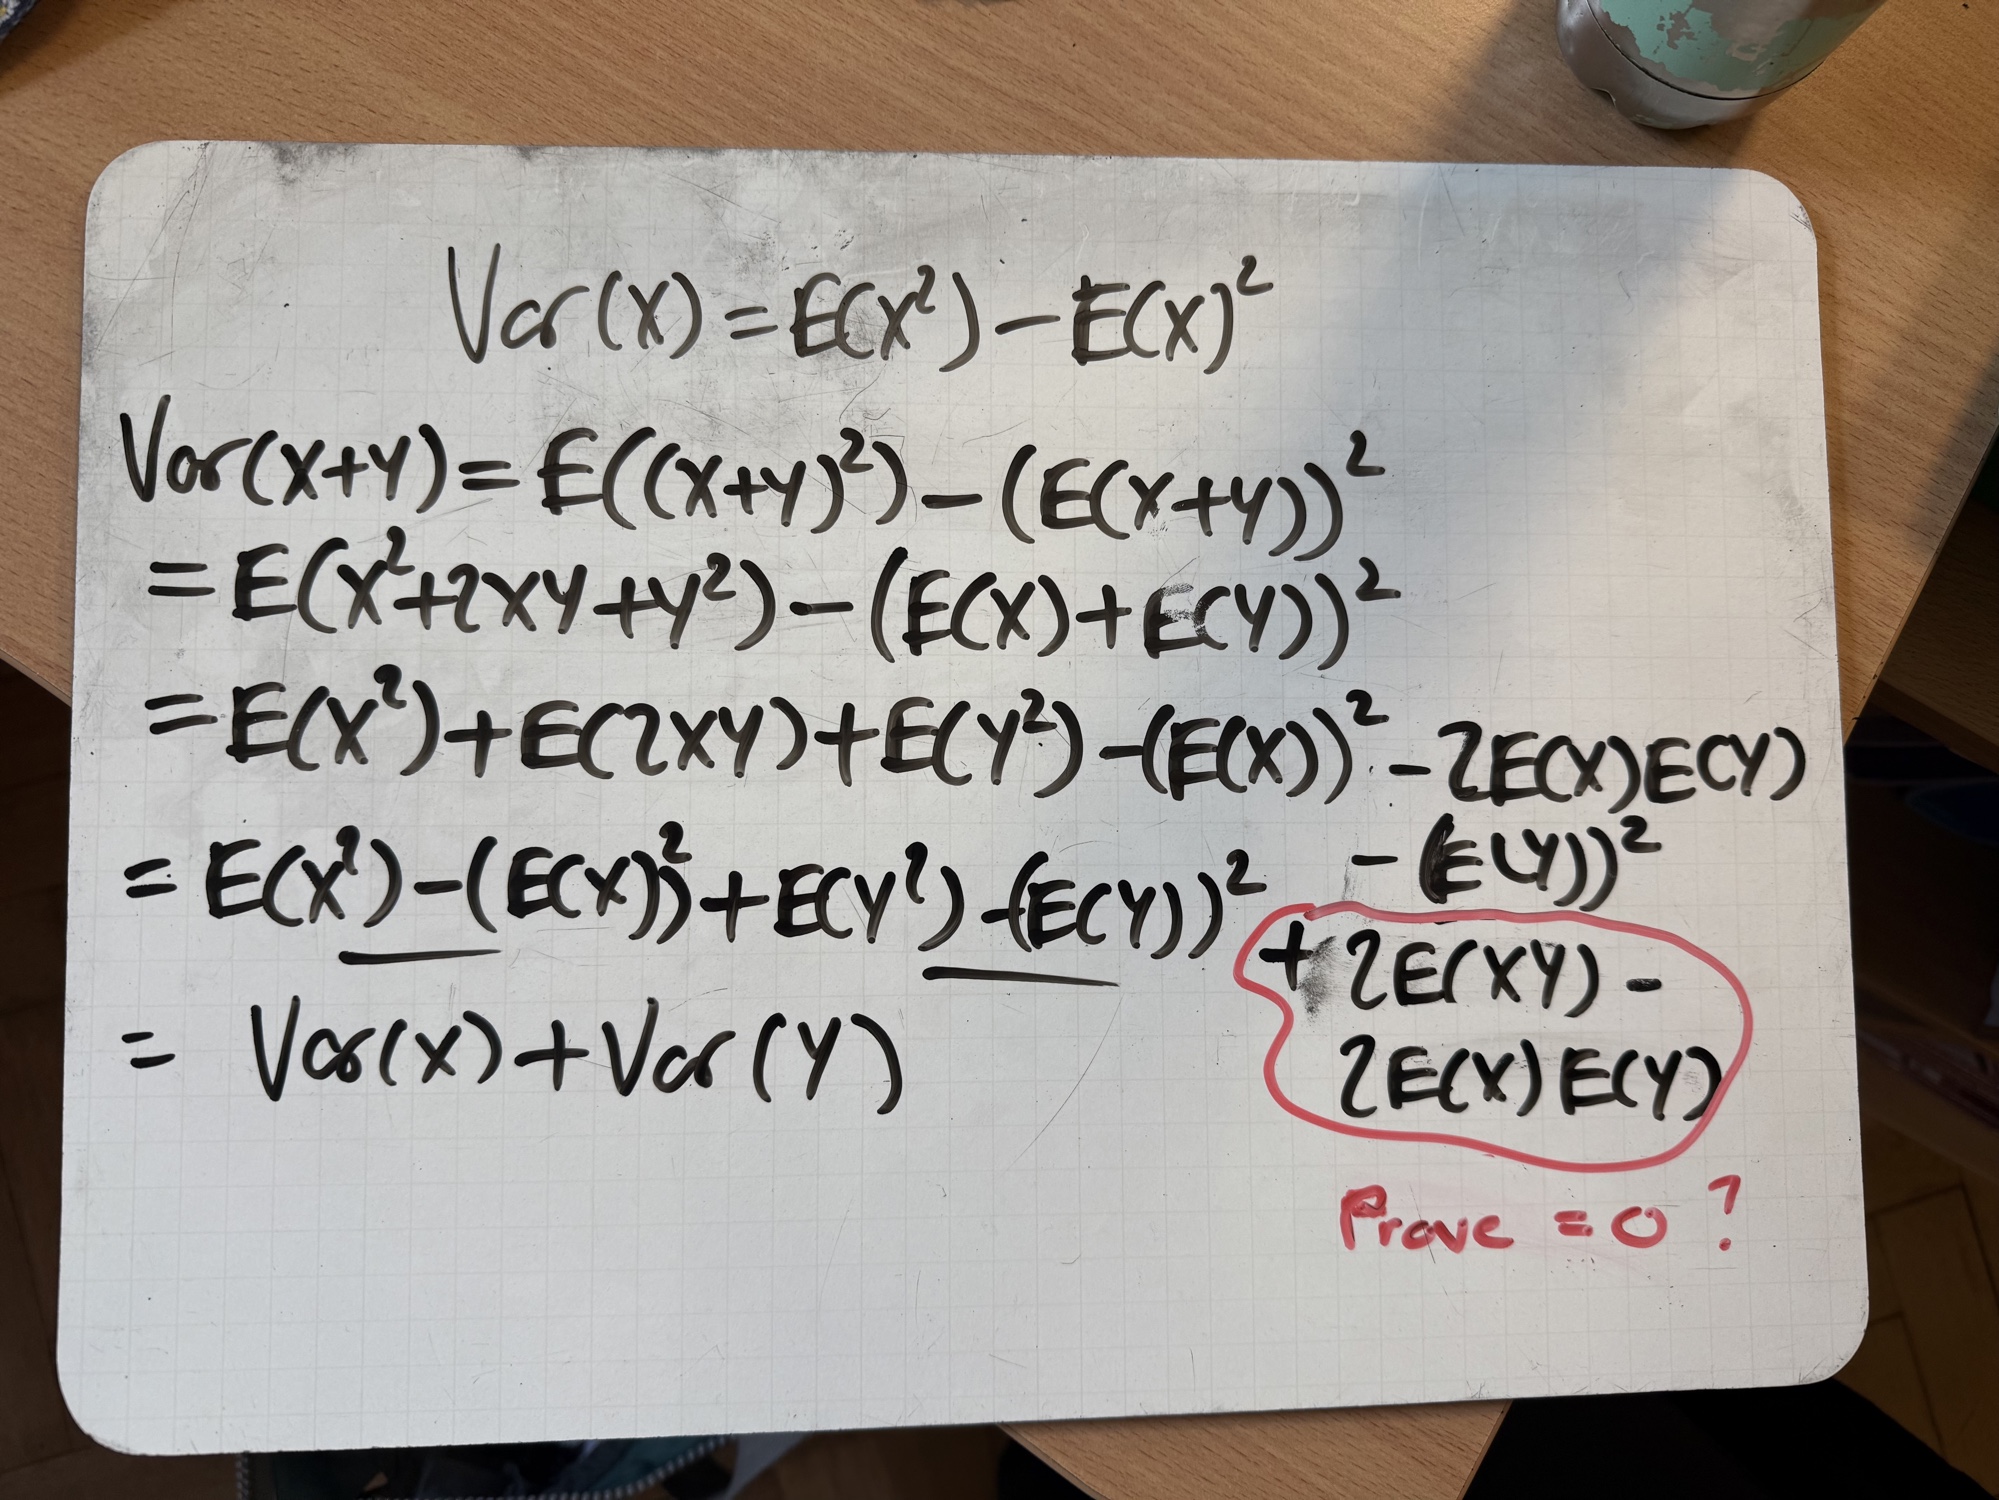 Var(X) = E(X²) - E(X)²
Var(X+Y) = E((X+Y)²) - (E(X+Y))²
= E(X²+2XY+Y²) - (E(X)+E(Y))²
= E(X²)+E(2XY)+E(Y²) -(E(X))² - 2E(X)E(Y)
- (E(Y))²
= E(X²) -(E(X))²+E(Y²) -(E(Y))²
+ 2E(XY) -
2E(X)E(Y)
= Var(X)+Var(Y)
Prove = 0 ?